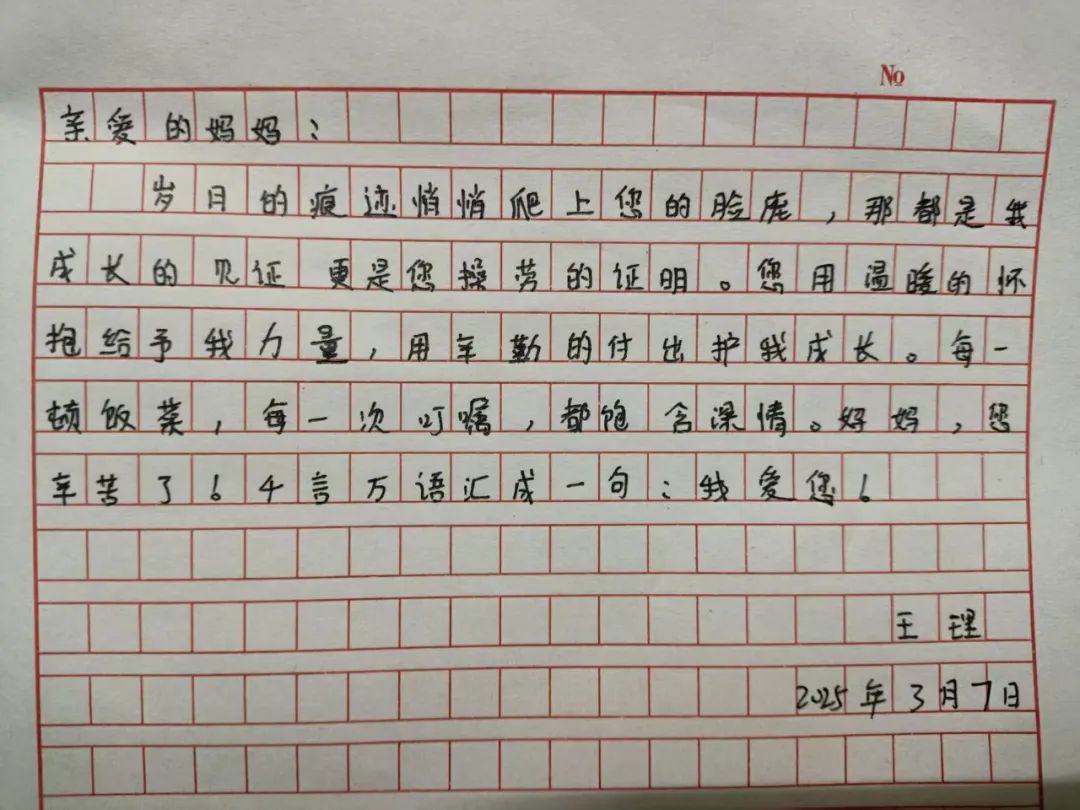 No
亲爱的妈妈：
岁月的痕迹悄悄爬上您的脸庞，那都是我
成长的见证 更是您操劳的证明。您用温暖的怀
抱给予我力量，用辛勤的付出护我成长。每一
顿饭菜，每一次叮嘱，都饱含深情。妈妈，您
辛苦了！千言万语汇成一句：我爱您！
王理
2025年3月7日